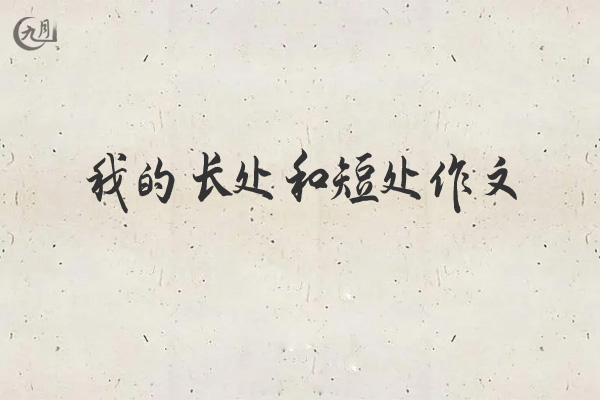 九月
我的长处和短处作文